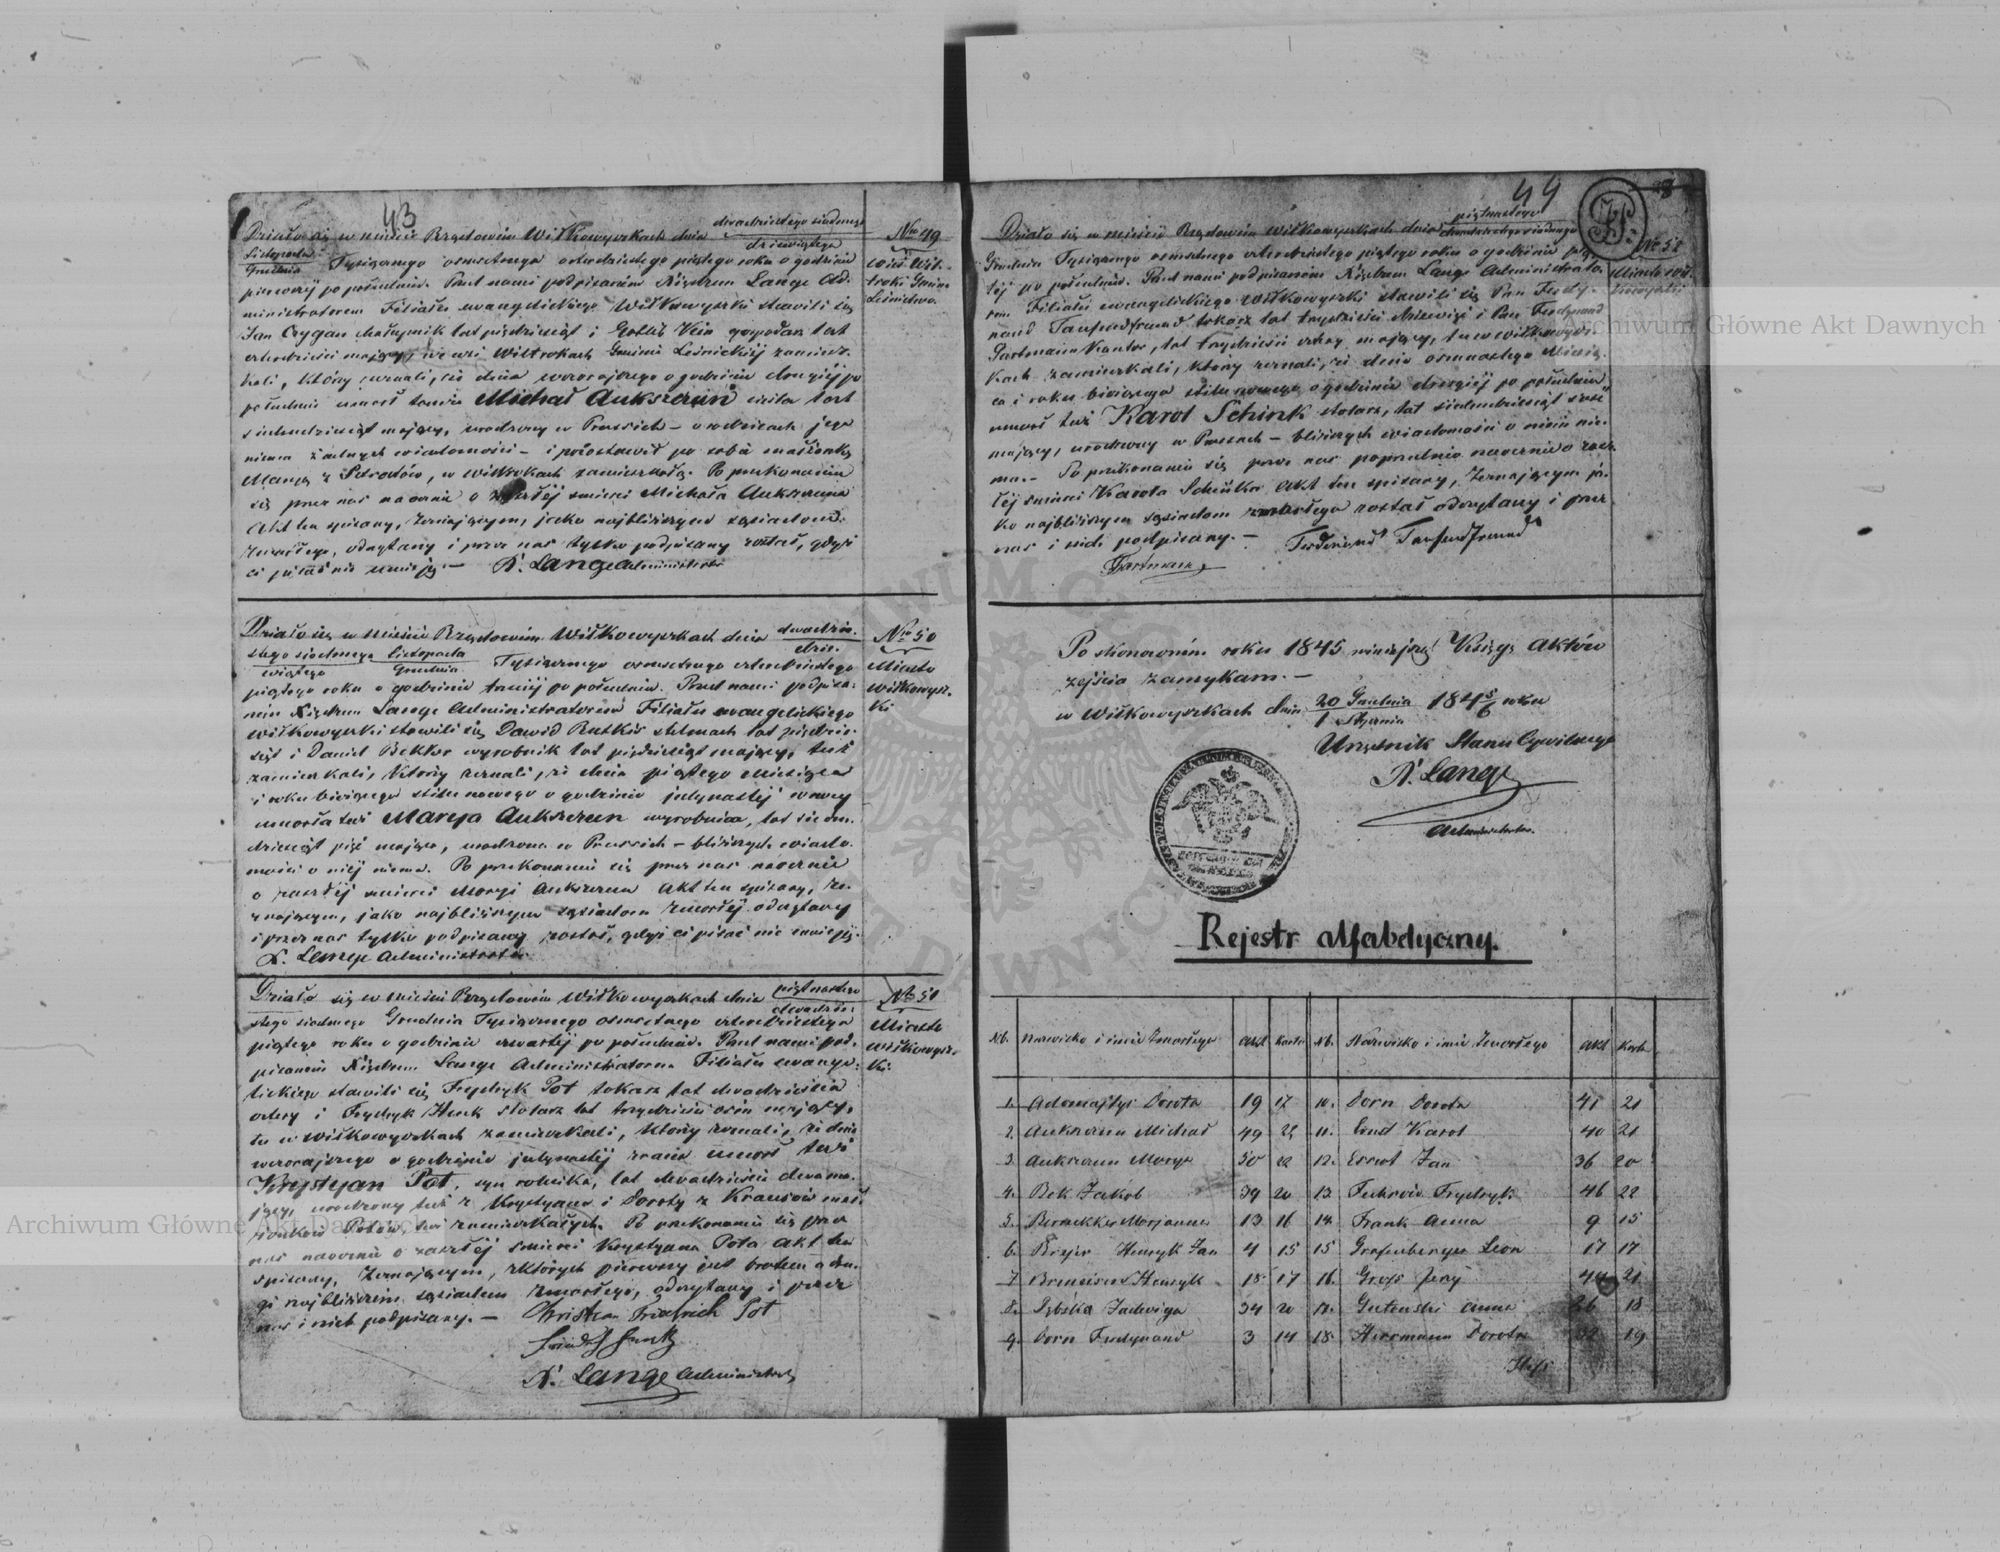 43
Działo się w mieście Rządowém Wiłkowyszkach dnia dwudziestego siódmego
dziewiątego
Listopada
Grudnia Tysiącznego osmsetnego czterdziestego piątego roku o godzinie
pierwszej po południu. Przed nami podpisanym Księdzem Lange Ad-
ministratorem Filiału ewangelickiego Wiłkowyszki stawili się
Jan Cygan chałupnik lat pięćdziesiąt i Gotlib Vein gospodarz lat
czterdzieści mający, we wsi Wiłtrokach Gminie Leśnickiéj zamiesz-
kali, którzy zeznali, iż dnia wczorajszego o godzinie drugiéj po
południu umarł tamże Michał Aukszrun lat
siedmdziesiąt mający, urodzony w Prusiech – o rodzicach jego
niema żadnych wiadomości – i pozostawił po sobie małżonkę
Maryą z w Wiłtrokach zamieszkałą. Po przekonaniu
się przez nas naocznie o zaszłéj śmierci Michała Aukszruna
Akt ten spisany, zeznającym, jako najbliższym sąsiadom
zmarłego, odczytany i przez nas tylko podpisany został, gdyż
ci pisać nie umieją. – X. Lange Administrator
No 49
wieś Wił-
troki Gmina
Leśnictwo.
Działo się w Mieście Rządowém Wiłkowyszkach dnia dwudzie-
stego siódmego Listopada dzie-
wiątego Grudnia Tysiącznego osmsetnego czterdziestego
piątego roku o godzinie trzeciéj po południu. Przed nami podpisa-
nym Księdzem Lange Administratorem Filiału ewangelickiego
Wiłkowyszki stawili się Dawid Rutkis stelmach lat pięćdzie-
siąt i Daniel Bekker wyrobnik lat pięćdziesiąt mający, tuż
zamieszkali, którzy zeznali, iż dnia piątego Miesiąca
i roku bieżącego stilu nowego o godzinie jedynastéj w nocy
umarła tuż Maryja Aukszrun wyrobnica, lat siedm-
dziesiąt pięć mająca, urodzona w Prusiech – bliższych wiado-
mości o niéj niema. Po przekonaniu się przez nas naocznie
o zaszłéj śmierci Maryi Aukszrun Akt ten spisany, ze-
znającym, jako najbliższym sąsiadom zmarłéj odczytany
i przez nas tylko podpisany został, gdyż ci pisać nie umieją.
X. Lange Administrator
No 50
Miasto
Wiłkowysz-
ki
Działo się w Mieście Rządowém Wiłkowyszkach dnia piętnastego
dwudzie-
stego siódmego Grudnia Tysiącznego osmsetnego czterdziestego
piątego roku o godzinie czwartéj po południu. Przed nami pod-
pisanym Księdzem Lange Administratorem Filiału ewange-
lickiego stawili się Frydryk Pot tokarz lat dwadzieścia
cztery i Frydryk Henk stolarz lat trzydzieści ośm mający,
tu w Wiłkowyszkach zamieszkali, którzy zeznali, iż dnia
wczorajszego o godzinie jedynastéj zrana umarł tuż
Krystyan Pot, syn rolnika, lat dwadzieścia dwa ma-
jący, urodzony tuż z Krystyana i Doroty z Krausów mał-
żonków Potów, tuż zamieszkałych. Po przekonaniu się przez
nas naocznie o zaszłéj śmierci Krystyana Pota Akt ten
spisany, zeznającym, z których pierwszy jest bratem a dru-
gi najbliższym sąsiadem zmarłego, odczytany i przez
nas i nich podpisany. – Christian Friedrich Pot
X. Lange Administrator
No 51
Miasto
Wiłkowysz-
ki.
44
Działo się w mieście Rządowém Wiłkowyszkach dnia piętnastego
dwudziestego siódmego
Grudnia Tysiącznego osmsetnego czterdziestego piątego roku o godzinie pią-
téj po południu. Przed nami podpisanym Księdzem Lange Administrato-
rem Filiału ewangelickiego Wiłkowyszki stawili się Pan Ferdy-
nand Tausendfreund tokarz lat trzydzieści dziewięć i Pan Ferdynand
Gartmann Kantor, lat trzydzieści cztery mający, tu w Wiłkowysz-
kach zamieszkali, którzy zeznali, iż dnia osmnastego Miesią-
ca i roku bieżącego stilu nowego o godzinie drugiéj po południu
umarł tuż Karol Schink stolarz, lat siedmdziesiąt sześć
mający, urodzony w Prusach – bliższych wiadomości o niém nie-
ma. – Po przekonaniu się przez nas poprzednio naocznie o zasz-
łéj śmierci Karola Schinka Akt ten spisany, zeznającym ja-
ko najbliższym sąsiadom zmarłego został odczytany i przez
nas i nich podpisany. – Ferdinand Tausendfreund
Gartmann
Miasto Wił-
kowyszki
Po skonczoném roku 1845 niniejszą Księgę Aktów
zejścia zamykam. –
w Wiłkowyszkach dnia 20 Grudnia 1845 roku
1 Stycznia 6
Urzędnik Stanu Cywilnego
X. Lange
Administrator.
Rejestr alfabetyczny.
Nb. Nazwisko i imie Zmarłego Akt Karta Nb. Nazwisko i imie Zmarłego Akt Karta
1. Adomajtys Dorota 19 17 10. Dorn Dorota 41 21
2. Aukszrun Michał 49 23 11. Ernd Karol 40 21
3. Aukszrun Marya 50 22 12. Ernst Jan 36 20
4. Bek Jakób 39 20 13. Frydryk 46 22
5. Marjanna 13 16 14. Frank Anna 9 15
6. Brejer Henryk Jan 4 15 15. Grafenberger Leon 17 17
7. Henryk 18 17 16. Gross Jerzy 44 21
8. Jadwiga 34 20 17. Gutenski Anna 26 18
9. Dorn Ferdynand 3 14 18. Herrmann Dorota 32 19
Archiwum Główne Akt Dawnych
Archiwum Główne Akt Dawnych